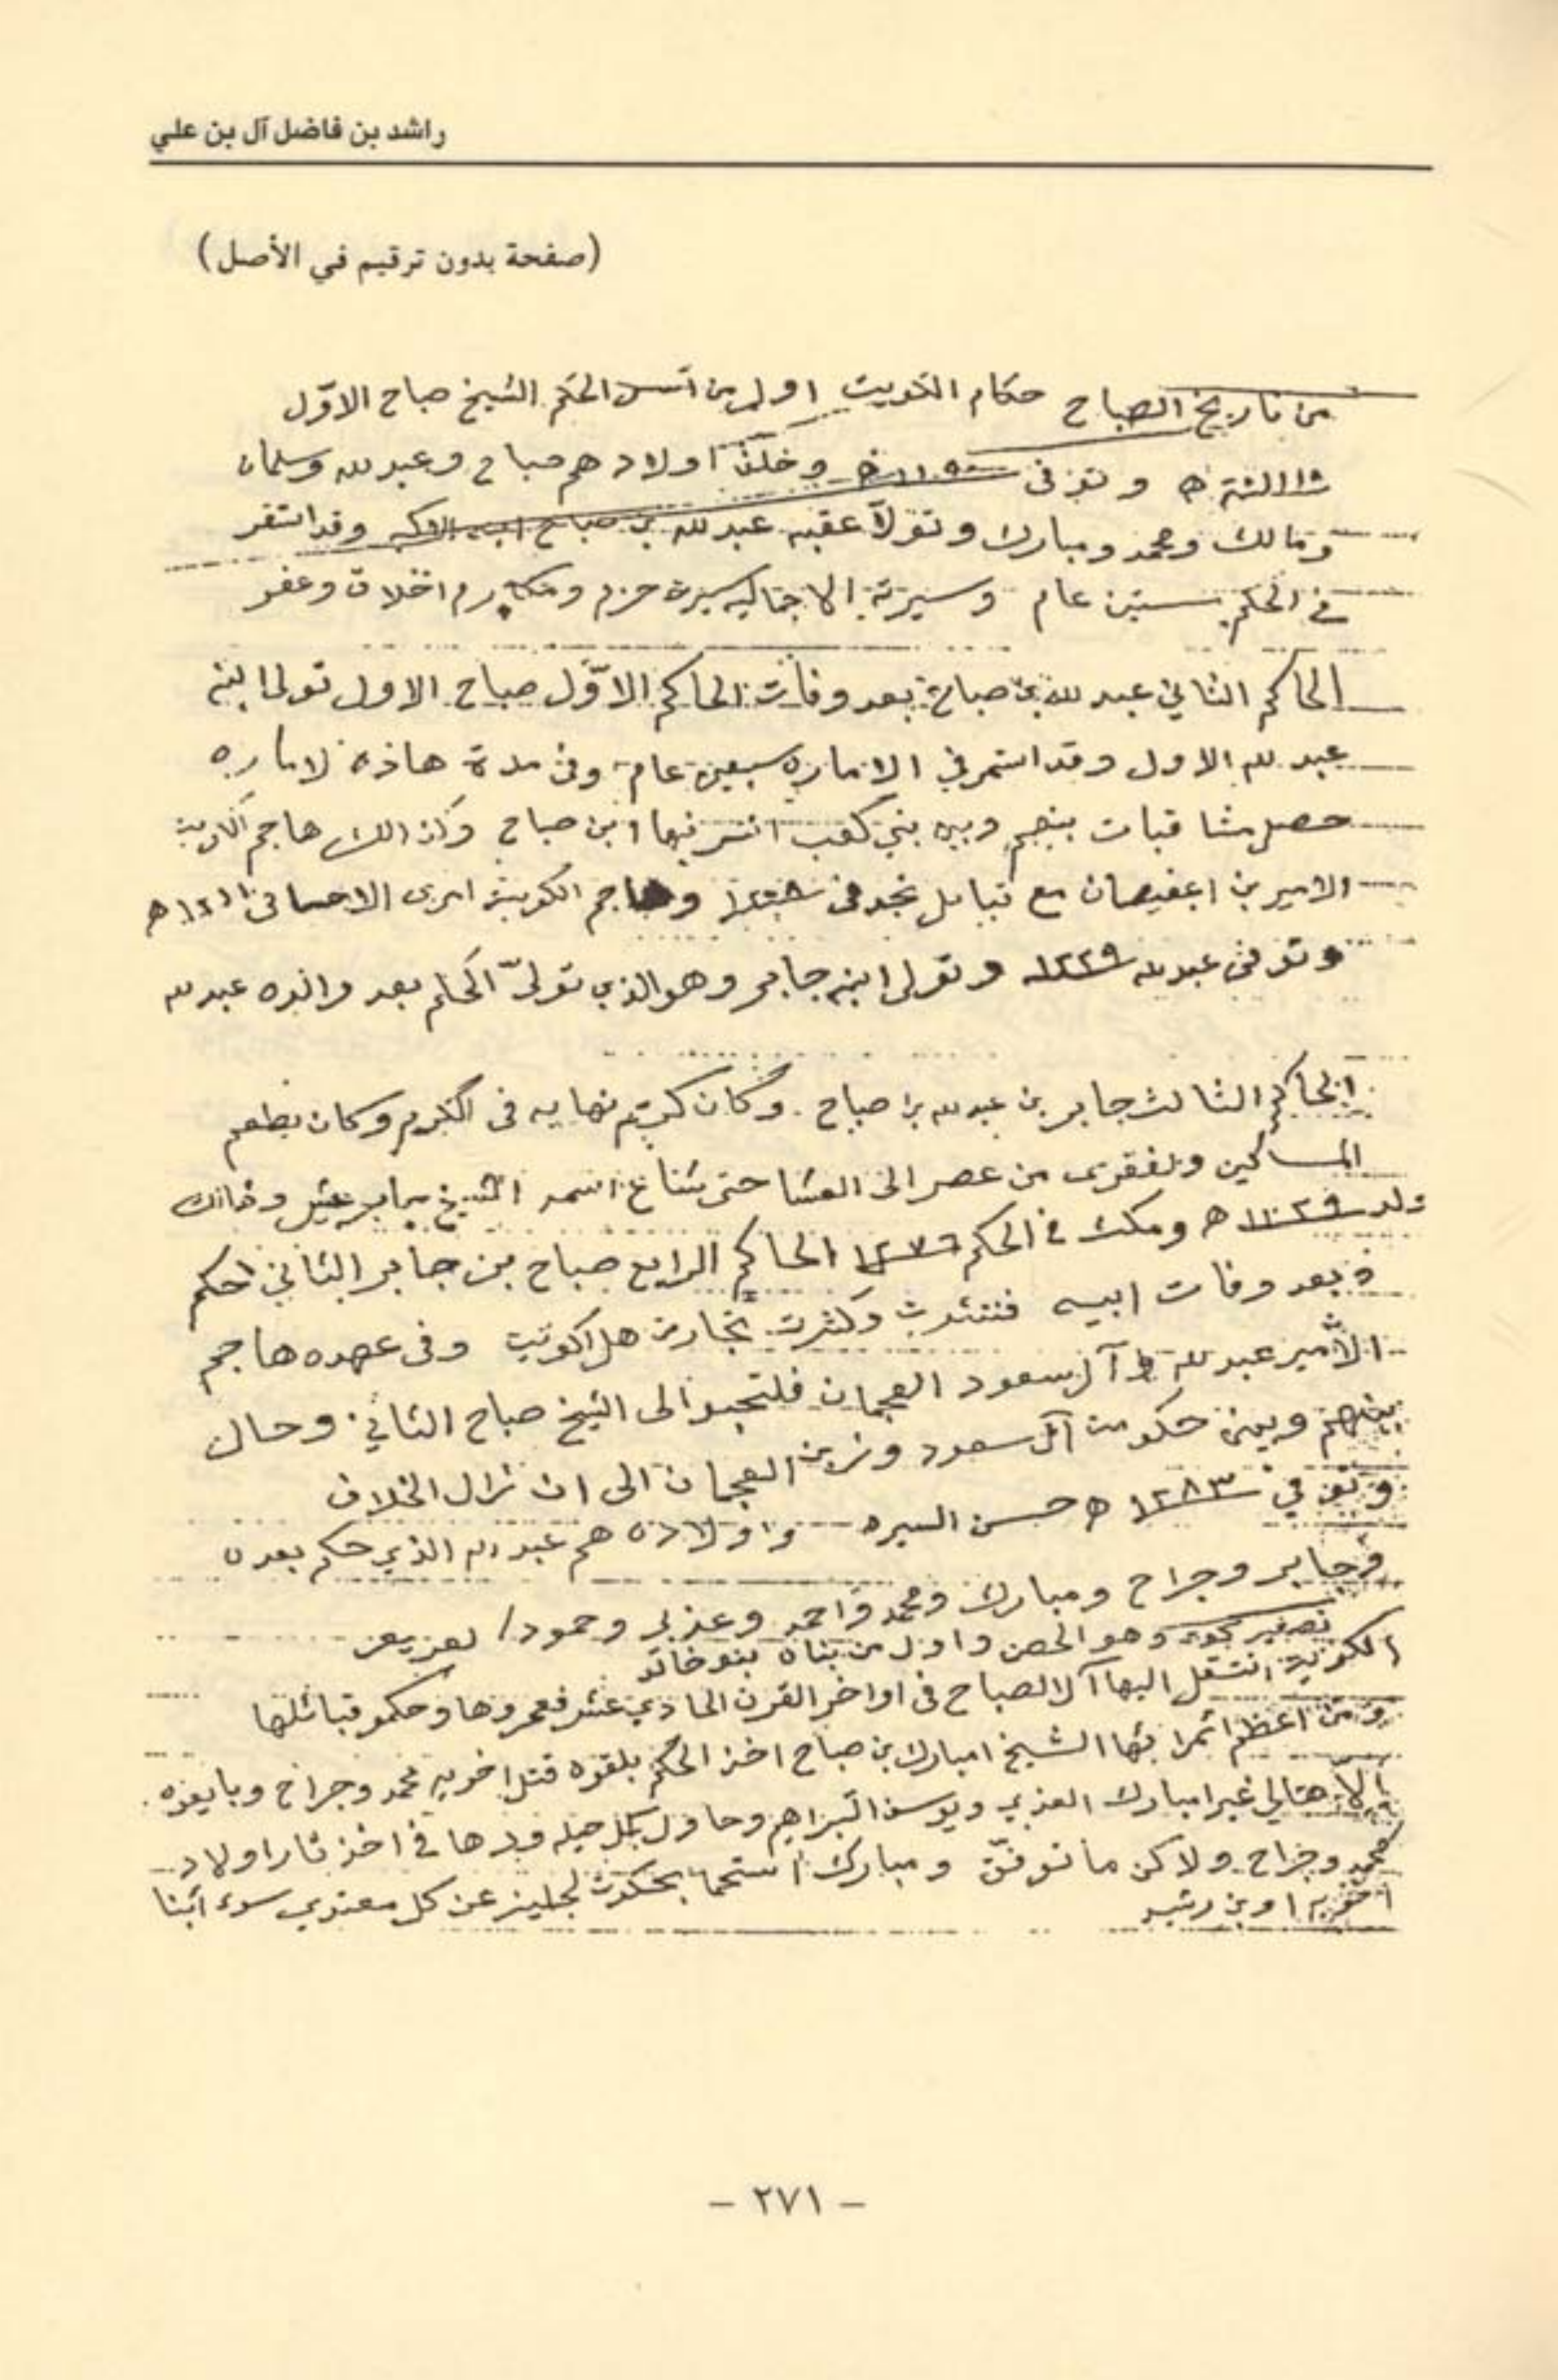 راشد بن فاضل آل بن علي
(صفحة بدون ترقيم في الأصل)
من تاريخ الصباح حكام الكويت اول من أسس الحكم الشيخ صباح الاوّل
وتوفى وخلّف اولاد هم صباح وعبد لله وسلمان
ومالك ومحمد ومبارك وتولاّ عقبه عبد لله بن صباح وقد استقر
في الحكم ستين عام وسيرته الاجماليه سيرة حزم ومكارم اخلاق وعفو
الحاكم الثاني عبد لله بن صباح بعد وفات الحاكم الاوّل صباح الاول تولى ابنه
عبد لله الاول وقد استمر في الاماره سبعين عام وفى مدة هاذه لاماره
حصل مشاقبات بينهم وبين بني كعب انتسر فيها ابن صباح وكذالك هاجم الكويت
الامير بن اعفيصان مع قبايل نجد في وهاجم الكويت امرى الاحسا في ه
وتوفى عبد لله ١٢٢٩ وتولى ابنه جابر وهو الذي تولّى الحكم بعد والده عبد لله
الحاكم الثالث جابر بن عبد لله بن صباح . وكان كريم نهايه فى الكرم وكان يطعم
المساكين ولفقرى من عصر الى العشا حتى شاع اسمه الشيخ جابر عيش وذالك
ولد ه ومكث في الحكم ١٢٧٦ الحاكم الرابع صباح بن جابر الثاني احكم
بعد وفات ابيه وكثرت تجارت هل الكويت وفى عهده هاجم
الأمير عبد لله آل سعود العجمان فلتجو الى الشيخ صباح الثاني وحال
بينهم وبين حكومت آل سعود وبين العجمان الى ان زال الخلاف
وتوفي ١٢٨٣ ه حسن السيره واولاده هم عبد لله الذي حكم بعده
وجابر وجراح ومبارك ومحمد واحمد وعذبي وحمود/
تصغير كوت وهو الحصن واول من بناه بنو خالد
الكويت انتقل اليها آل الصباح فى اواخر القرن الحادي عشر فعمروها وحكمو قبائلها
ومن اعظم أمرائها الشيخ امبارك بن صباح اخذ الحكم بلقوه قتل اخويه محمد وجراح وبايعوه
الاهالي غير امبارك العذبي ويوسف البراهيم وحاول بكل حيله في اخذ ثار اولاد
محمد وجراح ولاكن ما توفّق ومبارك استحما بحكومت لجليز عن كل معتدي سوء ابنا
اخويه اوبن رشيد
– ٢٧١ –